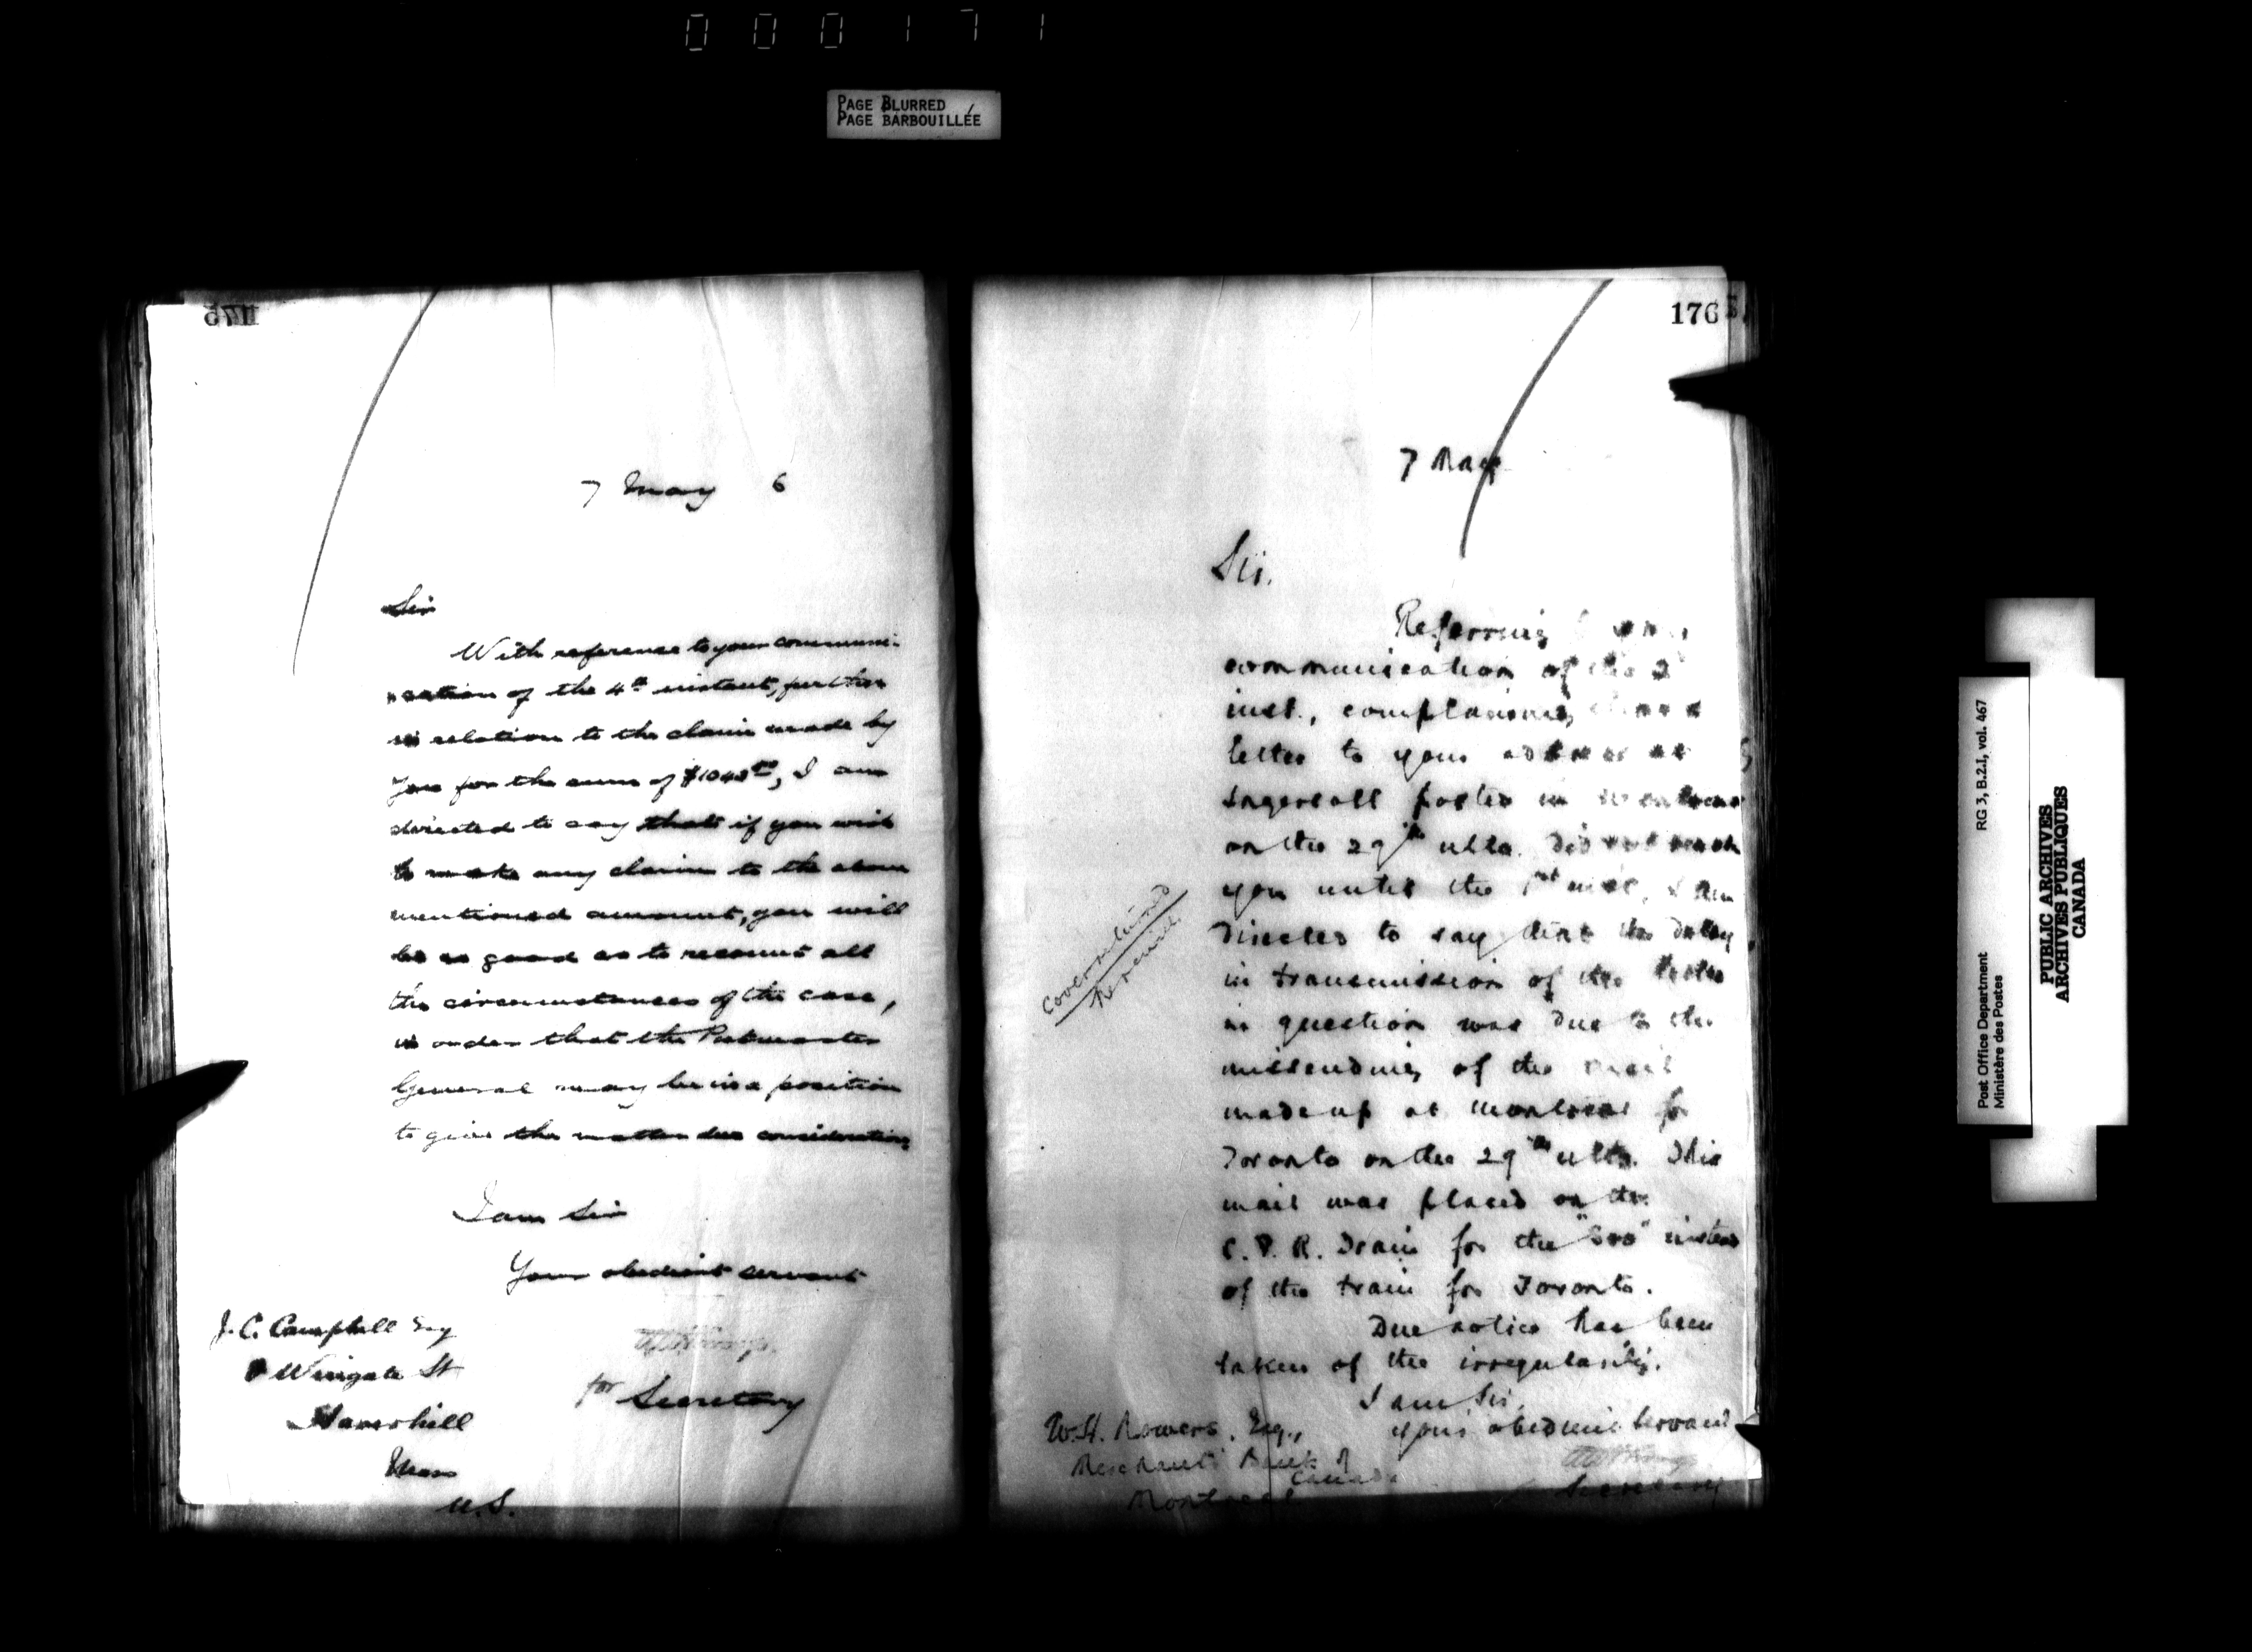 000171
PAGE BLURRED
PAGE BARBOUILLÉE
175
7 May 6
Sir
With reference to your communi-
cation of the 4th instant, further
in relation to the claim made by
you for the sum of I am
directed to say that if you wish
to make any claim to the above
mentioned amount, you will
be so good as to recount all
the circumstances of the case,
in order that the Postmaster
General may be in a position
to give the matter due consideration
I am Sir
Your obedient servant
for Secretary
J. C. Campbell Esq
Wingate St
Haverhill
Mass
U.S.
176
7 May
Sir.
Referring
communication of the 2
inst., complaining
letter to your address at
Ingersoll posted in Montreal
on the 29th ulto. did not reach
you until the 1st inst, I am
directed to say that the delay
in transmission of the letter
in question was due to the
missending of the mail
made up at Montreal for
Toronto on the 29th ulto. This
mail was placed on the
C. P. R. Train for the "Soo" instead
of the train for Toronto.
Due notice has been
taken of the irregularity.
I am Sir,
your obedient servant
Secretary
W. H. Rowers, Esq.,
Merchants Bank of
Canada
Montreal
Post Office Department RG 3, B.2.1, vol. 467
Ministère des Postes
PUBLIC ARCHIVES
ARCHIVES PUBLIQUES
CANADA